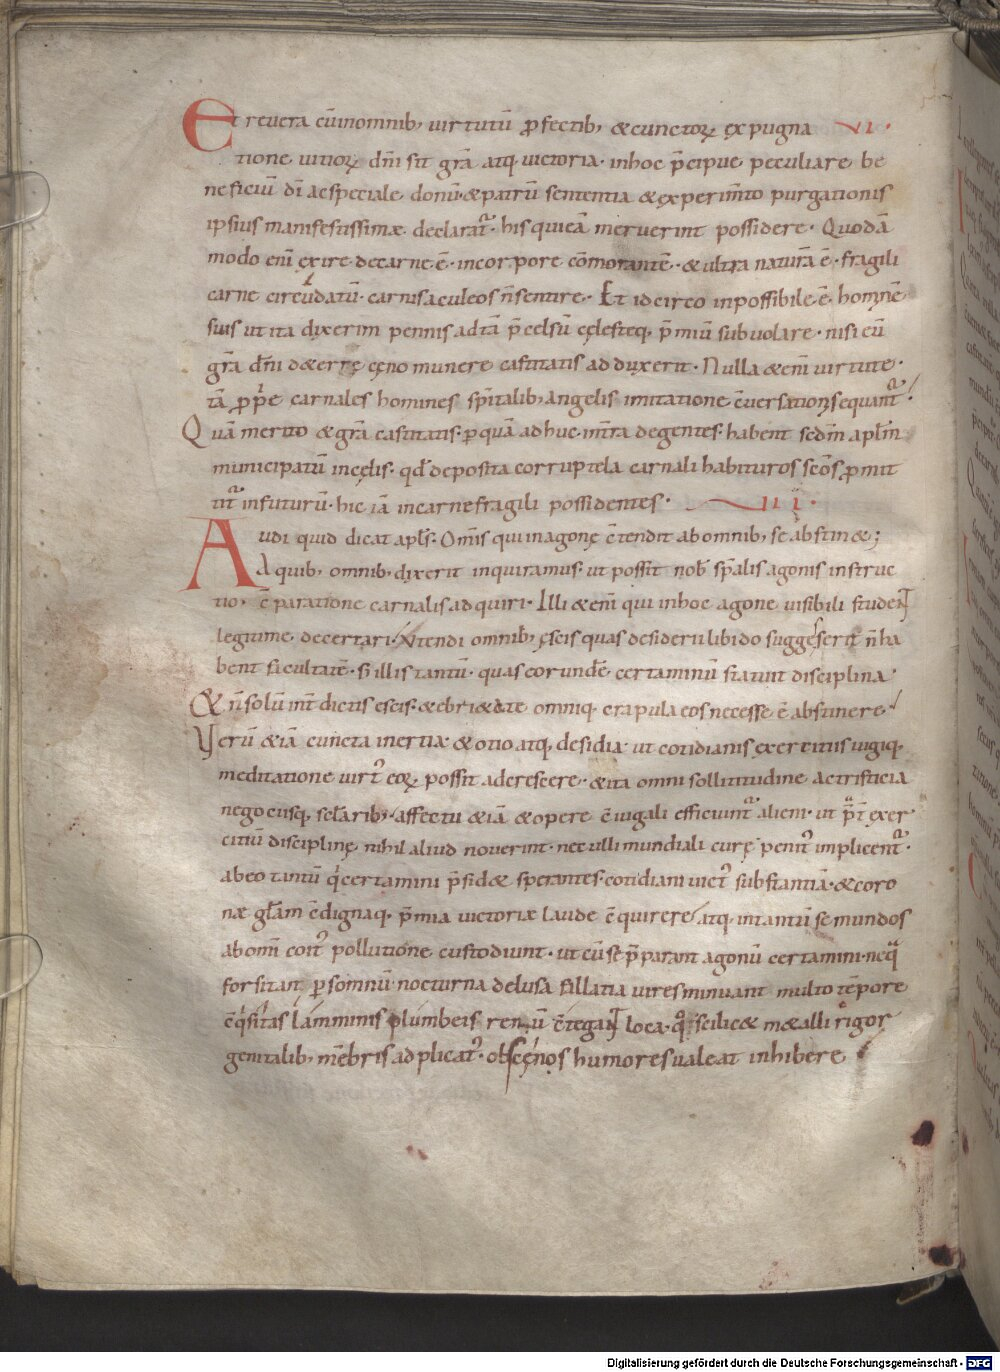 Et revera cū in omnib; virtutū ꝓfectib; & cunctoꝝ expugna VI.
tione vitioꝝ dn̄i sit gr̄a atq; victoria· in hoc p̄cipue peculiare be
neficiū dī ac speciale donū· & patrū sententia & experim̄to purgationis
ipsius manifestissimæ declarat᷑· his qui eā meruerint possidere· Quodā
modo enī exire de carne ē· in corpore cōmorantē· & ultra naturā ē· fragili
carne circūdatū· carnis aculeos n̄ sentire· Et idcirco inpossibile ē hominē
suis ut ita dixerim pennis ad tā p̄celsū cęlesteq; p̄miū subvolare· nisi eū
gr̄a dn̄i de terrę cęno munere castitatis adduxerit· Nulla &enī virtute·
tā ꝓpⁱe carnales homines spītalib; angelis imitatione cōversationis equant᷑·
Quā merito & gr̄a castitatis· ꝑ quā adhuc in t̄ra degentes· habent sedm̄ apl̄m
municipatū in cęlis· qd̄ deposita corruptela carnali habituros sc̄os ꝓmit
tit᷑ in futurū· hic iā in carne fragili possidentes· VII·
Audi quid dicat apl̄s· Om̄is qui in agone cōtendit ab omnib; se abstin&;
A quib; omnib; dixerit inquiramus· ut possit nob̄ spītalis agonis instruc
tio· cōparatione carnalis adquiri· Illi &enī qui in hoc agone visibili student
legitime decertari· Utendi omnib; escis quas desiderii libido suggesserit n̄ ha
bent facultatē· s; illis tantū· quas eorundē certaminū statuit disciplina·
& n̄ solū int̄dictis escis· & ebri&ate omniq; crapula eos necesse ē abstinere·
Verū &iā cuncta inertia· & otio atq; desidia· ut cotidianis exercitiis iugiq;
meditatione virt᷒ eoꝝ possit adcrescere· & ita omni sollicitudine ac tristicia
negociisq; sc̄larib;· affectu &iā & opere cōiugali efficiunt᷑ alieni· ut p̄t̄ exer
citiū disciplinę nihil aliud noverint· nec ulli mundiali curę penit᷒ implicent᷑·
ab eo tantū qⁱ certamini p̄sid& sperantes· cotidiani vict᷒ substantiā· & coro
næ gl̄am cōdignaq; p̄mia victoriæ laude cōquirere· atq; in tantū se mundos
ab om̄i coit᷒ pollutione custodiunt· ut cū se p̄parant agonū certamini· ne qᵃ
forsitan ꝑ somnū· nocturna delusi fallatia vires minuant multo tēpore
cōqⁱsitas lāminis plumbeis reniū cōtegant loca· qͦ scilic& m&alli rigor
genitalib; mēbris adplicat᷒· obscęnos humores valeat inhibere
Digitalisierung gefördert durch die Deutsche Forschungsgemeinschaft - DFG